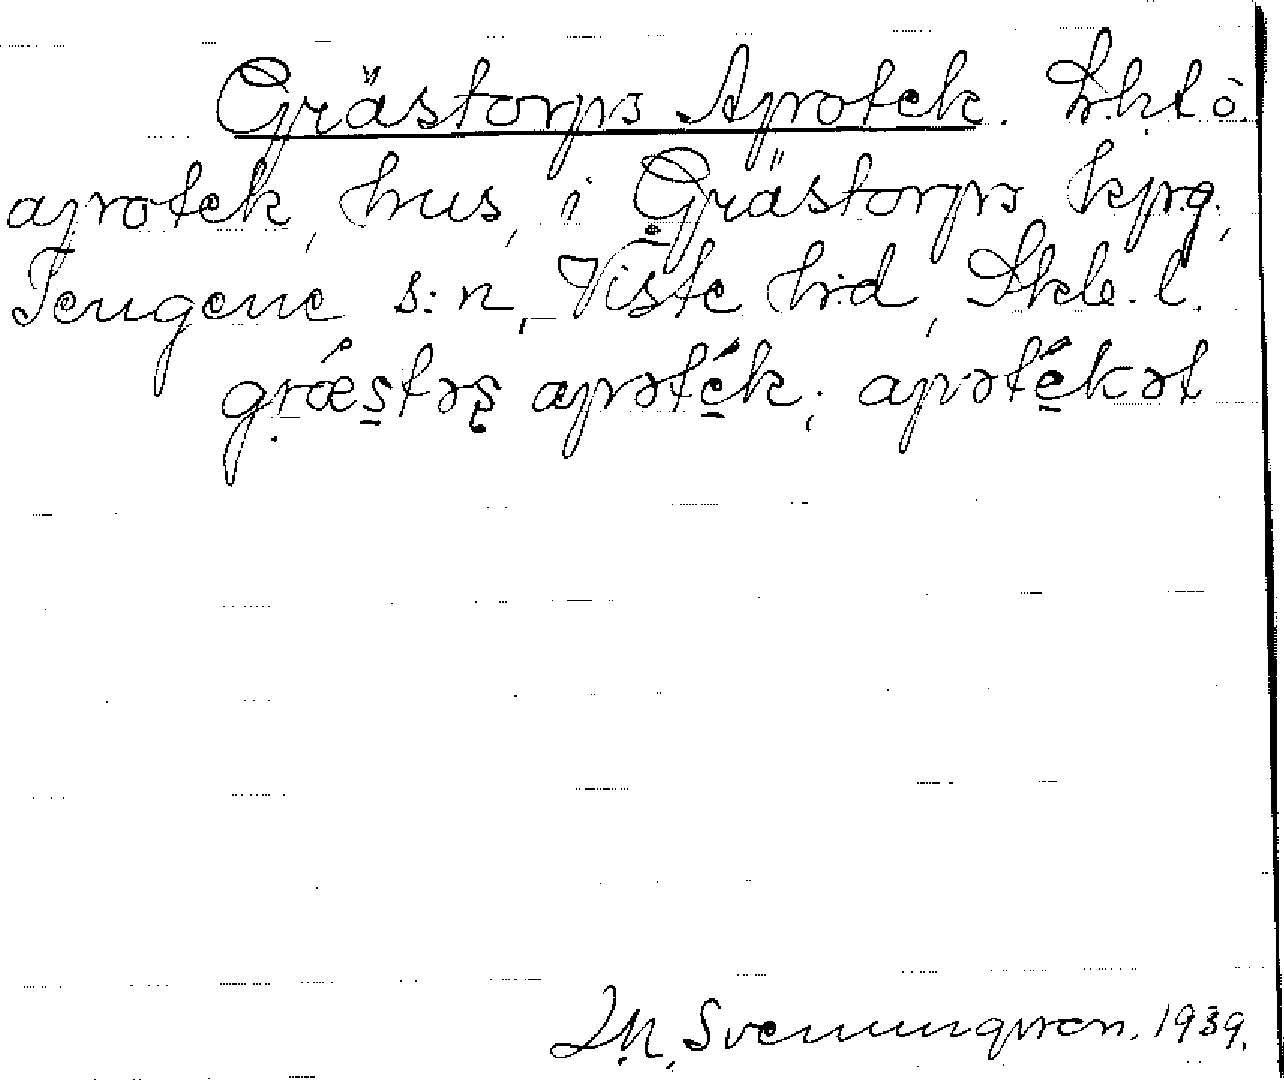 Grästorps Apotek.
apotek, hus, i Grästorps kpg,
Tengene s:n, Viste hd, Skb. l.
græ̀stəş apəték; apətékət
Svenningsson. 1939.